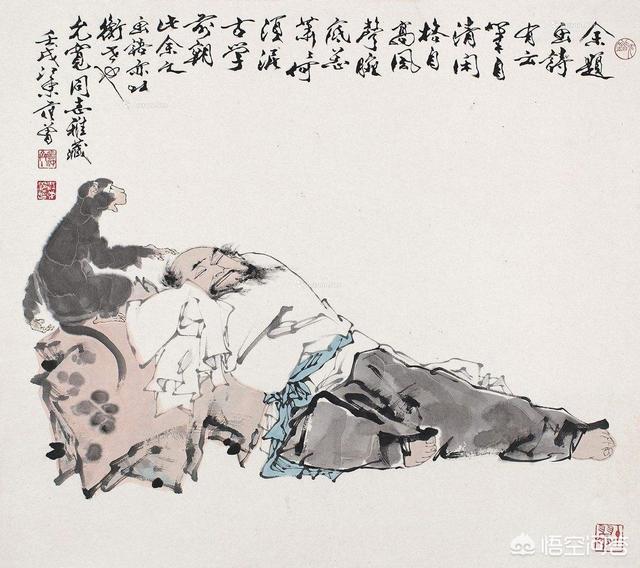 余题
画诗
有云
笔自
清闲
格自
高风
声腕
底若
萧々何
须泥
古学
前朝
此余文
亦以
允宽同志雅藏
壬戌江东范曾
悟空问答